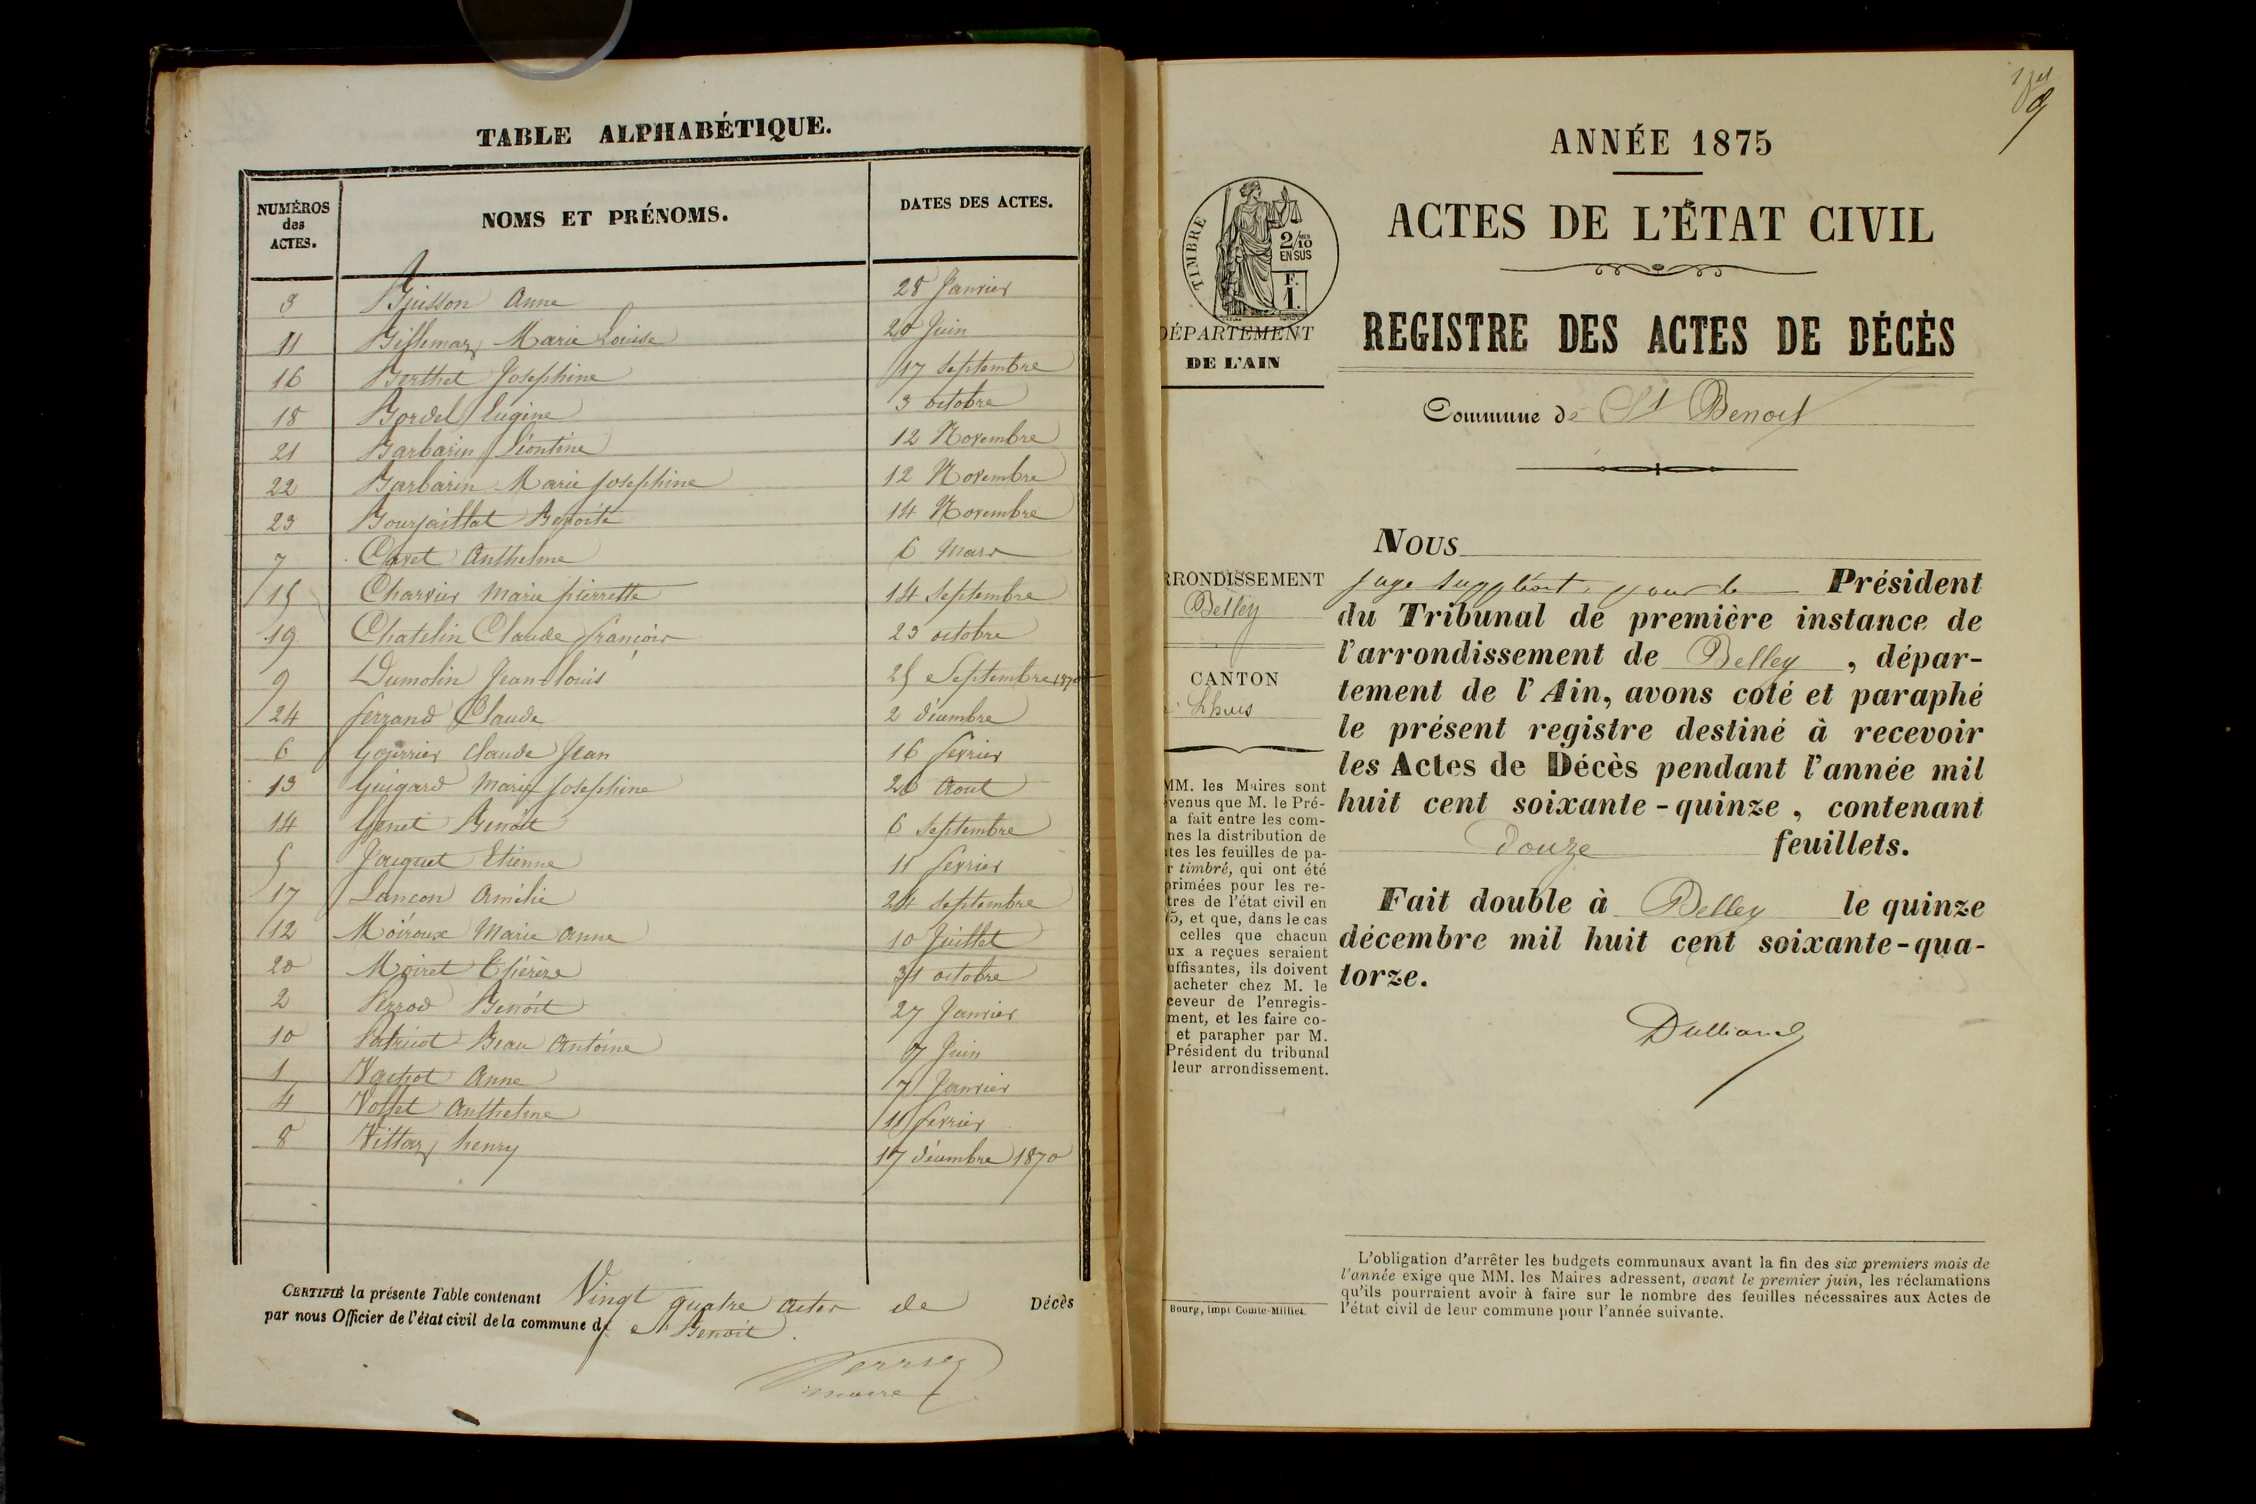 TABLE ALPHABÉTIQUE.
NUMÉROS des ACTES.
NOMS ET PRÉNOMS.
DATES DES ACTES.
3 Buisson Anne 28 Janvier
11 Marie Louise 20 Juin
16 Berthet Josephine 17 Septembre
18 Bordel Eugène 3 octobre
21 Barbarin Léontine 12 Novembre
22 Barbarin Marie Josephine 12 Novembre
23 Bourjaillat Benoite 14 Novembre
7 Cavet Anthelme 6 Mars
15 Charvier Marie pierrette 14 Septembre
19 Chatelin Claude françois 23 octobre
9 Dumolin Jean Louis 25 Septembre 1870
24 ferrand Claude 2 décembre
6 Claude Jean 16 fevrier
13 Guigard Marie Josephine 26 Aout
14 Genet Benoit 6 Septembre
5 Jacquet Etienne 11 fevrier
17 Lancon Amélie 24 Septembre
12 Moiroux Marie Anne 10 Juillet
20 Moiret 31 octobre
2 Perrod Benoit 27 Janvier
10 Patricot Antoine 7 Juin
1 Anne 7 Janvier
4 Vollet Anthelme 11 fevrier
8 Vittoz henry 17 décembre 1870
CERTIFIÉ la présente Table contenant Vingt quatre actes de Décès
par nous Officier de l'état civil de la commune de St Benoit.
maire
ANNÉE 1875
ACTES DE L'ÉTAT CIVIL
TIMBRE
2/10 EN SUS
F. 1.
REGISTRE DES ACTES DE DÉCÈS
DÉPARTEMENT
DE L'AIN
Commune de St Benoit
RRONDISSEMENT
Belley
CANTON
Lhuis
MM. les Maires sont
venus que M. le Pré-
a fait entre les com-
nes la distribution de
tes les feuilles de pa-
r timbré, qui ont été
primées pour les re-
tres de l'état civil en
5, et que, dans le cas
celles que chacun
ux a reçues seraient
uffisantes, ils doivent
acheter chez M. le
ceveur de l'enregis-
ment, et les faire co-
et parapher par M.
Président du tribunal
leur arrondissement.
Bourg, imp. Comte-Milliet.
Nous
juge suppléant, pour le Président
du Tribunal de première instance de
l'arrondissement de Belley, dépar-
tement de l'Ain, avons coté et paraphé
le présent registre destiné à recevoir
les Actes de Décès pendant l'année mil
huit cent soixante-quinze, contenant
Douze feuillets.
Fait double à Belley le quinze
décembre mil huit cent soixante-qua-
torze.
Dulliand
L'obligation d'arrêter les budgets communaux avant la fin des six premiers mois de
l'année exige que MM. les Maires adressent, avant le premier juin, les réclamations
qu'ils pourraient avoir à faire sur le nombre des feuilles nécessaires aux Actes de
l'état civil de leur commune pour l'année suivante.